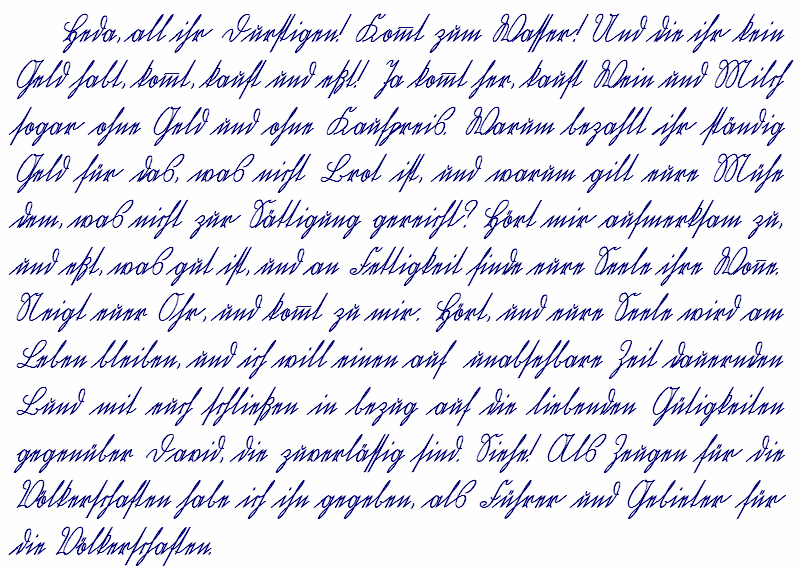 Heda, all ihr Durstigen! Kom̄t zum Wasser! Und die ihr kein
Geld habt, kom̄t, kauft und eßt! Ja kom̄t her, kauft Wein und Milch
sogar ohne Geld und ohne Kaufpreis. Warum bezahlt ihr ständig
Geld für das, was nicht Brot ist, und warum gilt eure Mühe
dem, was nicht zur Sättigung gereicht? Hört mir aufmerksam zu,
und eßt, was gut ist, und an Fettigkeit finde eure Seele ihre Won̄e.
Neigt euer Ohr, und kom̄t zu mir. Hört, und eure Seele wird am
Leben bleiben, und ich will einen auf unabsehbare Zeit dauernden
Bund mit euch schließen in bezug auf die liebenden Gütigkeiten
gegenüber David, die zuverlässig sind. Siehe! Als Zeugen für die
Völkerschaften habe ich ihn gegeben, als Führer und Gebieter für
die Völkerschaften.